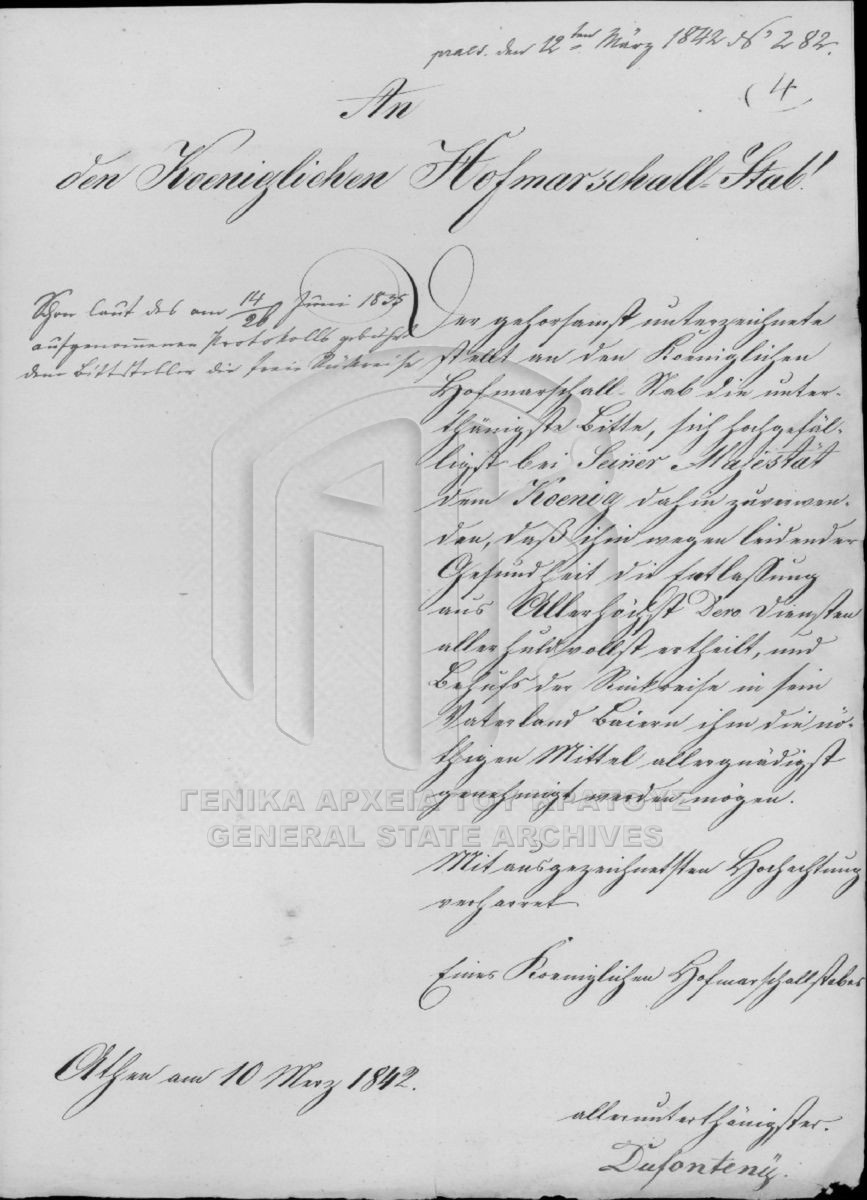 praes. den 12ten März 1842 No 282.
(4)
An
den Koeniglichen Hofmarschall-Stab!
Schon laut des am 14/26 Juni 1835
aufgenommenen Protokolls gebührt
dem Bittsteller die freie Rükreise
Der gehorsamst unterzeichnete
stellt an den Koeniglichen
Hofmarschall-Stab die unter-
thänigste Bitte, sich hochgefäl-
ligst bei Seiner Majestät
dem Koenig dahin zu verwen-
den, daß ihm wegen leidender
Gesundheit die Entlassung
aus Allerhöchst Dero Diensten
allerhuldvollst ertheilt, und
Behufs der Rükreise in sein
Vaterland Baiern ihm die nö-
thigen Mittel allergnädigst
genehmigt werden mögen.
Mit ausgezeichnetsten Hochachtung
verharret
Eines Koeniglichen Hofmarschallstabes
Athen am 10 Merz 1842.
allerunterthänigster.
Dufontenÿ.
ΓΕΝΙΚΑ ΑΡΧΕΙΑ ΤΟΥ ΚΡΑΤΟΥΣ
GENERAL STATE ARCHIVES